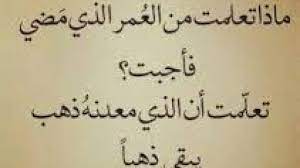 ماذا تعلمت من العُمر الذي مَضي
فأجبت؟
تعلّمت أن الذي معدنهُ ذهب
يبقى ذهباً